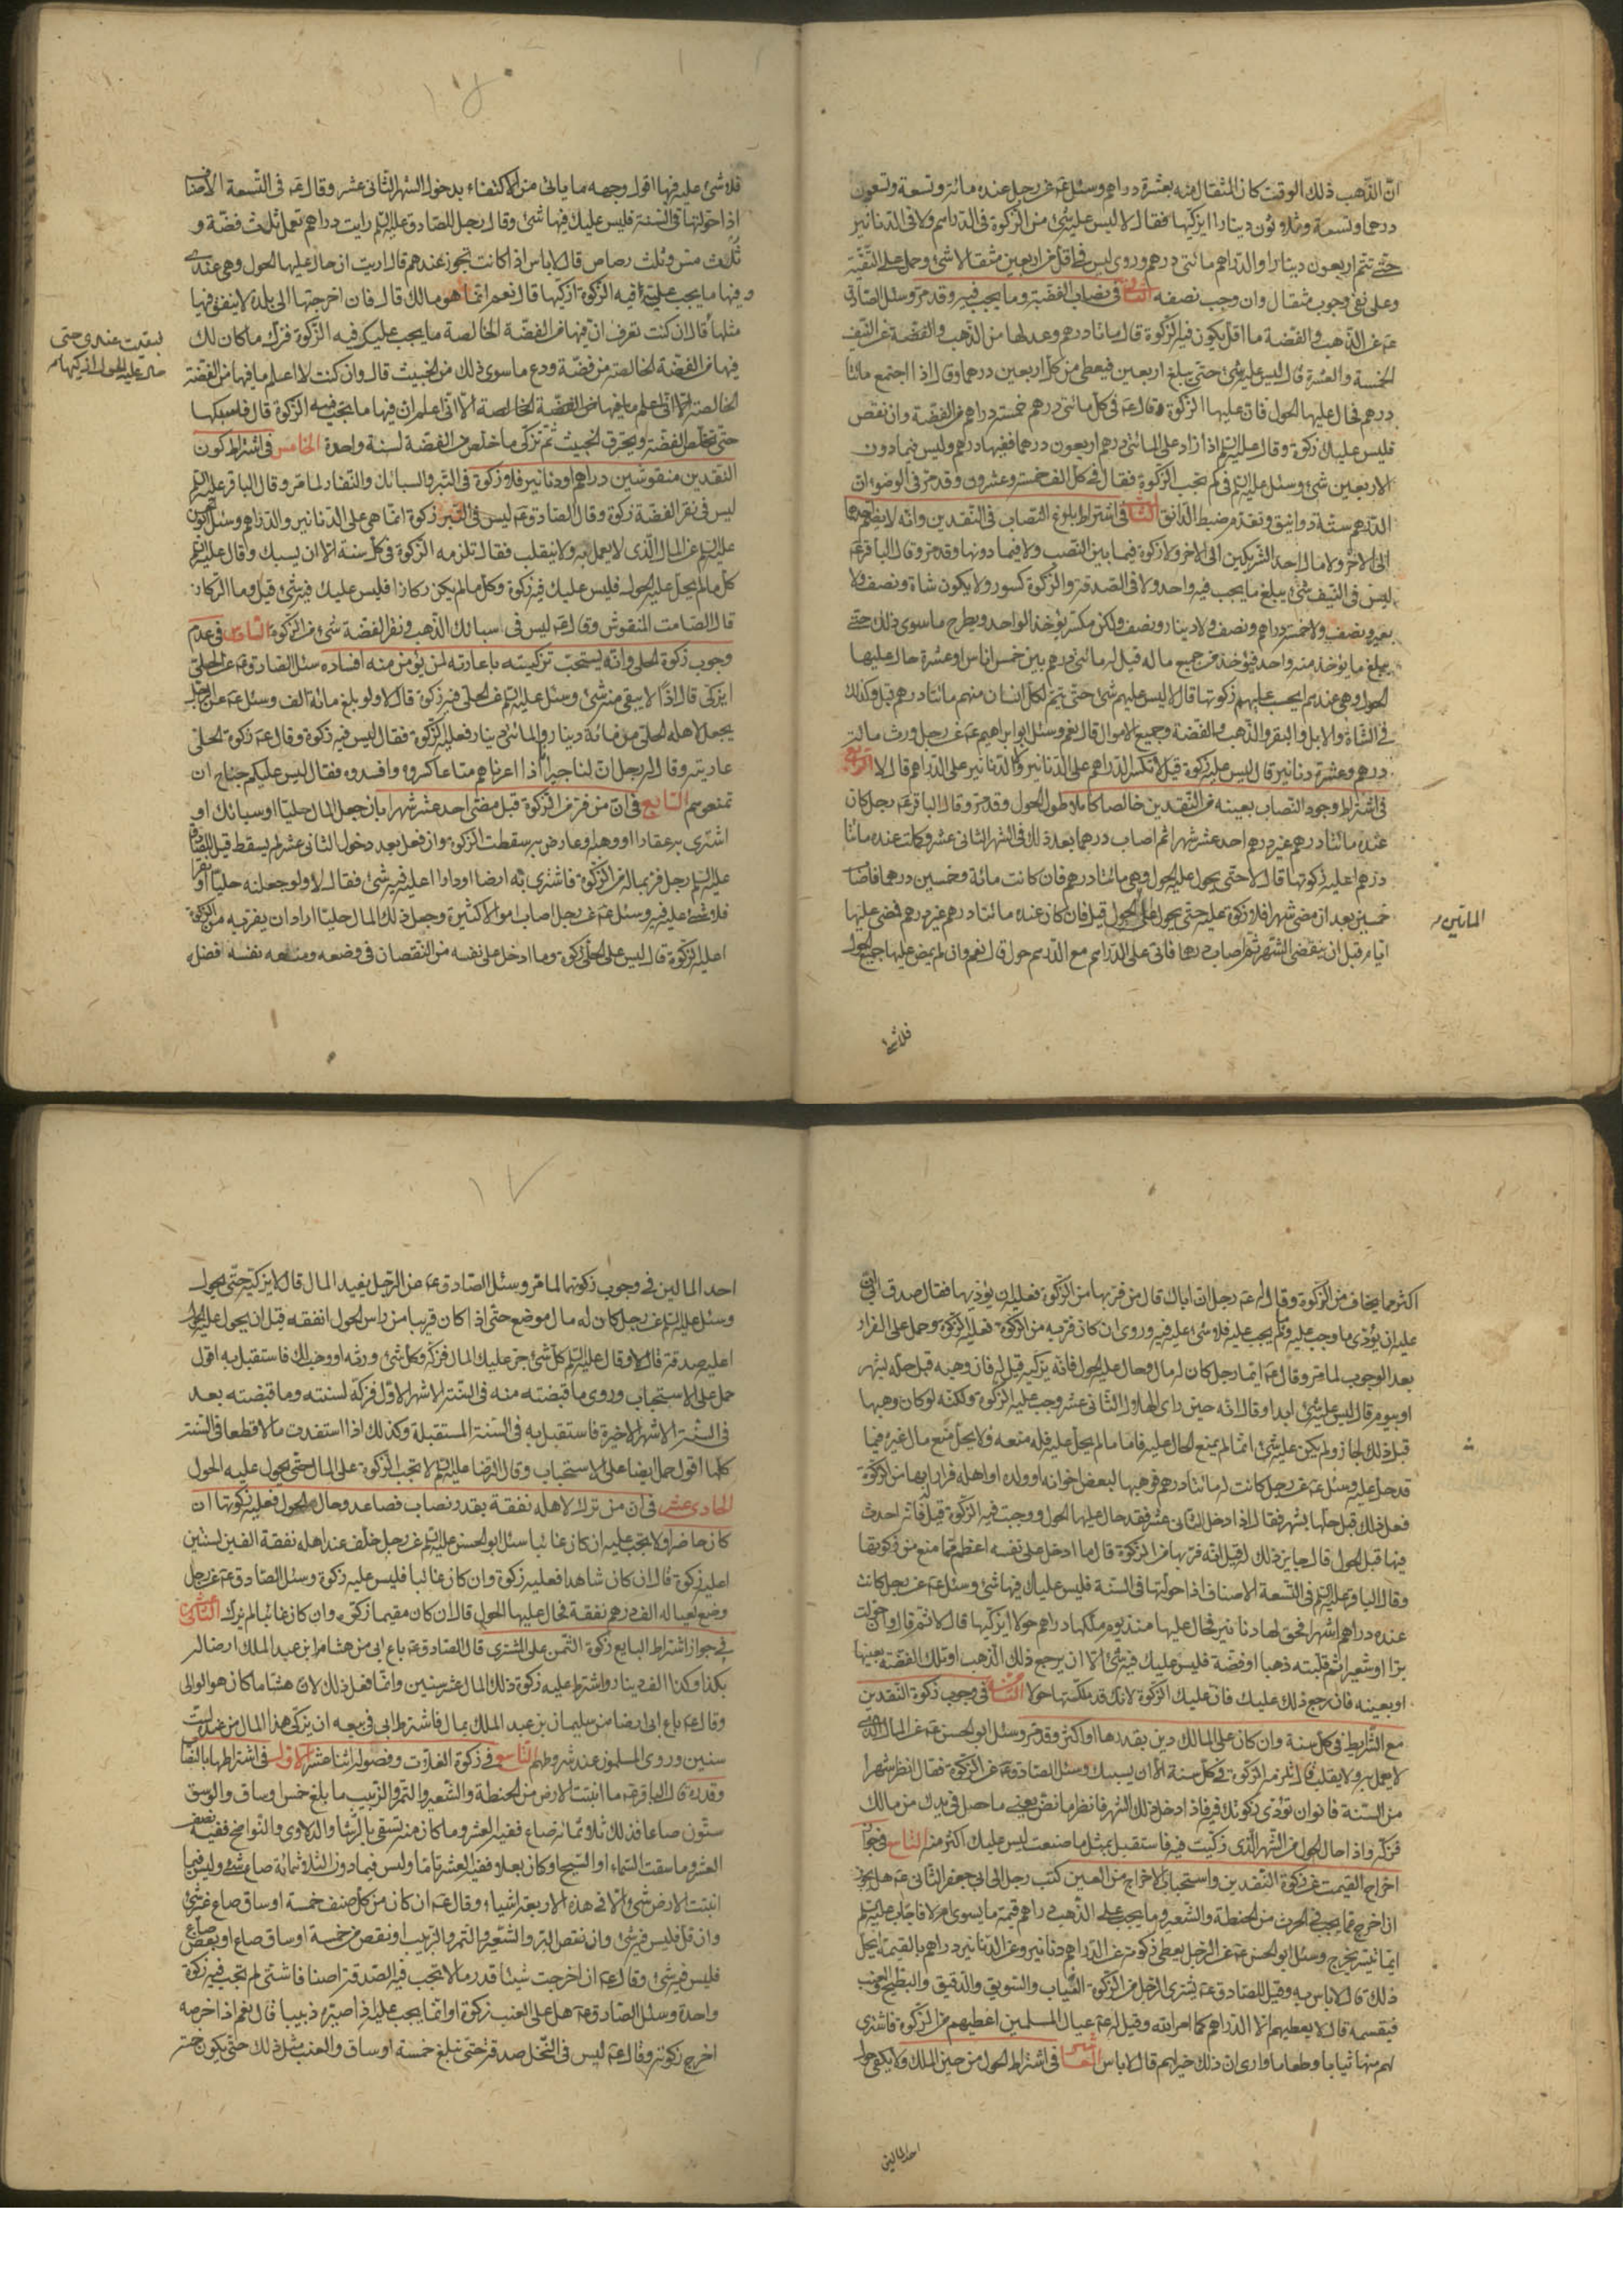 انّ الذّهب ذلك الوقت كان المثقال منه بعشرة دراهم وسئل عن رجل عنده مائة وتسعة وتسعون
درهما وتسعة وثلاثون دينارا ايزكيها فقال لا ليس عليه شئ من الزكوة فى الدراهم ولا فى الدنانير
حتى تتم اربعون دينارا والدراهم مائتى درهم وروى ليس فى اقل من اربعين مثقالا شئ وحمل على التقية
وعلى نفى وجوب مثقال وان وجب نصفه الثانى فى نصاب الفضة وما يجب فيه وقد مرّ وسئل الصادق
ع عن الذهب والفضة ما اقل ما يكون فيه الزكوة قال مائتا درهم وعدلها من الذهب والفضة عن النيف
الخمسة والعشرة قال ليس عليه شئ حتى يبلغ اربعين فيعطى من كل اربعين درهما وقال اذا اجتمع مائتا
درهم فحال عليها الحول فان عليها الزكوة وقال ع فى كل مائتى درهم خمسة دراهم من الفضة وان نقص
فليس عليك زكوة وقال عليه السلم اذا زاد على المائتى درهم اربعون درهما ففيها درهم وليس فيما دون
الاربعين شئ وسئل عليه السلم فى كم تجب الزكوة فقال فى كل الف خمسة وعشرون وقد مرّ فى الوضوء ان
الدرهم ستة دوانيق وتقدم ضبط الدانق الثالث فى اشتراط بلوغ النصاب فى النقدين وانه لا يضم احدهما
الى الاخر ولا مال احد الشريكين الى الاخر ولا زكوة فيما بين النصب ولا فيما دونها وقد مرّ وقال الباقر ع
ليس فى النيف شئ يبلغ ما يجب فيه واحد ولا فى الصدقة والزكوة كسور ولا يكون شاة ونصف ولا
بعير ونصف ولا خمسة دراهم ونصف ولا دينار ونصف ولكن يؤخذ الواحد ويطرح ما سوى ذلك حتى
يبلغ ما يؤخذ منه واحد فيؤخذ من جميع ماله قيل له مائتى درهم بين خمس اناس او عشرة حال عليها
الحول وهى عندهم ايجب عليهم زكوتها قال لا ليس عليهم شئ حتى يتم لكل انسان منهم مائتا درهم قيل وكذلك
فى الشاة والابل والبقر والذهب والفضة وجميع الاموال قال نعم وسئل ابو ابراهيم ع عن رجل ورث مائة
درهم وعشرة دنانير قال ليس عليه زكوة قيل لا تكسر الدراهم على الدنانير ولا الدنانير على الدراهم قال لا الرابع
فى اشتراط وجود النصاب بعينه من النقدين خالصا كاملا طول الحول وقد مرّ وقال الباقر ع رجل كان
عنده مائتا درهم غير درهم احد عشر شهرا ثم اصاب درهما بعد ذلك فى الشهر الثانى عشر وكملت عنده مائتا
درهم اعليه زكوتها قال لا حتى يحول عليه الحول وهى مائتا درهم فان كانت مائة وخمسين درهما فاصاب
خمسين بعد ان مضى شهر فلا زكوة عليه حتى يحول على الحول قيل فان كان عنده مائتا درهم غير درهم فمضى عليها
ايام قبل ان ينقضى الشهر ثم اصاب درهما فاتى على الدراهم مع الدرهم حول قال نعم وان لم يمض عليها جميع الحول
المائتين
فلا شئ
فلا شئ عليه فيها اقول وجهه ما ياتى من الاكتفاء بدخول الشهر الثانى عشر وقال ع فى التسعة الاصناف
اذا حولتها فى السنة فليس عليك فيها شئ وقال رجل للصادق عليه السلم رايت دراهم تعمل ثلث فضة و
ثلث مس وثلث رصاص قال لا باس اذا كانت تجوز عندهم قال اريت ان حال عليها الحول وهى عندى
وفيها ما يجب على فيه الزكوة ازكيها قال نعم انما هو مالك قال فان اخرجتها الى بلدة لا ينفق فيها
مثلها قال ان كنت تعرف ان فيها من الفضة الخالصة ما يجب عليك فيه الزكوة فزك ما كان لك
فيها من الفضة الخالصة من فضة ودع ما سوى ذلك من الخبيث قال وان كنت لا اعلم ما فيها من الفضة
الخالصة الا انى اعلم ان فيها ما يجب فيه الزكوة قال فاسبكها
حتى تخلص الفضة ويحترق الخبيث ثم تزكى ما خلص من الفضة لسنة واحدة الخامس فى اشتراط كون
النقدين منقوشين دراهم او دنانير فلا زكوة فى التبر والسبائك والنقار لما مرّ وقال الباقر عليه السلم
ليس فى نقر الفضة زكوة وقال الصادق ع ليس فى التبر زكوة انما هى على الدنانير والدراهم وسئل الكاظم
عليه السلم عن المال الذى لا يعمل به ولا يتقلب فقال تلزمه الزكوة فى كل سنة الا ان يسبك وقال عليه السلم
كل ما لم يحل عليه الحول فليس عليك فيه زكوة وكل ما لم يكن ركازا فليس عليك فيه شئ قيل وما الركاز
قال الصامت المنقوش وقال ع ليس فى سبائك الذهب ونقر الفضة شئ من الزكوة السادس فى عدم
وجوب زكوة الحلى وانه يستحب تزكيته باعارته لمن يؤمن منه افساده سئل الصادق ع عن الحلى
ايزكى قال اذا لا يبقى منه شئ وسئل عليه السلم عن الحلى فيه زكوة قال لا ولو بلغ مائة الف وسئل ع عن رجل
يجعل لاهله الحلى من مائة دينار والمائتى دينار فعليه الزكوة فقال ليس فيه زكوة وقال ع زكوة الحلى
عاريته وقال له رجل ان لنا جيرانا اذا اعرناهم متاعا كسروه وافسدوه فقال ليس عليكم جناح ان
تمنعوهم السابع فى ان من فر من الزكوة قبل مضى احد عشر شهرا بان جعل المال حليا او سبائك او
اشترى به عقارا او وهبه وعارض به سقطت الزكوة وان فعل بعد دخول الثانى عشر لم يسقط قيل للصادق
عليه السلم رجل فر بماله من الزكوة فاشترى به ارضا او دارا اعليه فيه شئ فقال لا ولو جعله حليا او نقرا
فلا شئ عليه فيه وسئل ع عن رجل اصاب اموالا كثيرة وجعل ذلك المال حليا اراد ان يفر به من الزكوة
اعليه الزكوة قال ليس على الحلى زكوة وما ادخل على نفسه من النقصان فى وضعه ومنعه نفسه افضل
بقيت عندى حتى
حال عليه الحول ازكيها
اكثر مما يخاف من الزكوة وقال له ع رجل ان اباك قال من فر بها من الزكوة فعليه ان يؤديها فقال صدق ابى
عليه ان يؤدى ما وجب عليه وما لم يجب عليه فلا شئ عليه فيه وروى ان كان فر به من الزكوة فعليه الزكوة وحمل على الفرار
بعد الوجوب لما مرّ وقال ع ايما رجل كان له مال وحال عليه الحول فانه يزكيه قيل له فان وهبه قبل حله بشهر
او بيوم قال ليس عليه شئ ابدا وقال انه حين راى الهلال الثانى عشر وجب عليه الزكوة ولكنه لو كان وهبها
قبل ذلك لجاز ولم يكن عليه شئ انما لم يمنع الحال عليه فاما ما لم يحل عليه فله منعه ولا يحل منع مال غيره فيما
قد حل عليه وسئل ع عن رجل كانت له مائتا درهم فوهبها لبعض اخوانه او ولده او اهله فرارا بها من الزكوة
فعل ذلك قبل حلها بشهر فقال اذا دخل الثانى عشر فقد حال عليها الحول ووجبت فيه الزكوة قيل فانه احدث
فيها قبل الحول قال جايز ذلك له قيل انه فر بها من الزكوة قال ما ادخل على نفسه اعظم مما منع من زكوتها
وقال الباقر عليه السلم فى التسعة الاصناف اذا حولتها فى السنة فليس عليك فيها شئ وسئل ع عن رجل كانت
عنده دراهم اشهرا فحولها دنانير فحال عليها منذ يوم ملكها دراهم حولا ايزكيها قال لا ثم قال وان حولت
برا او شعيرا ثم قلبته ذهبا او فضة فليس عليك فيه شئ الا ان يرجع ذلك الذهب او تلك الفضة بعينها
او بعينه فان رجع ذلك عليك فان عليك الزكوة لانك قد ملكتها حولا الثامن فى وجوب زكوة النقدين
مع الشرايط فى كل سنة وان كان على المالك دين بقدرها او اكثر وقد مرّ وسئل ابو الحسن ع عن المال الذى
لا يعمل به ولا يقلب قال تلزمه الزكوة فى كل سنة الا ان يسبك وسئل الصادق ع عن الزكوة فقال انظر شهرا
من السنة فانو ان تؤدى زكوتك فيه فاذا دخل ذلك الشهر فانظر ما نض يعنى ما حصل فى يدك من مالك
فزكه واذا حال الحول من الشهر الذى زكيت فيه فاستقبل بمثل ما صنعت ليس عليك اكثر منه التاسع فى جواز
اخراج القيمة عن زكوة النقدين واستحباب الاخراج من العين كتب رجل الى ابى جعفر الثانى ع هل يجوز
ان اخرج عما يجب فى الحرث من الحنطة والشعير وما يجب على الذهب دراهم قيمة ما يسوى ام لا فاجاب عليه السلم
ايما تيسر يخرج وسئل ابو الحسن ع عن الرجل يعطى زكوته عن الدراهم دنانير وعن الدنانير دراهم بالقيمة ايحل
ذلك قال لا باس به وقيل للصادق ع يشترى الرجل من الزكوة الثياب والسويق والدقيق والبطيخ والعنب
فيقسمه قال لا يعطيهم الا الدراهم كما امر الله وقيل له ع عيال المسلمين اعطيهم من الزكوة فاشترى
لهم منها ثيابا وطعاما وارى ان ذلك خير لهم قال لا باس العاشر فى اشتراط الحول من حين الملك ولا يكفى حول
احد المالين
احد المالين فى وجوب زكوتها لما مرّ وسئل الصادق ع عن الرجل يفيد المال قال لا يزكيه حتى يحول
وسئل عليه السلم عن رجل كان له مال موضع حتى اذا كان قريبا من راس الحول انفقه قبل ان يحول عليه الحول
اعليه صدقة قال لا وقال عليه السلم كل شئ جر عليك المال فزكه وكل شئ ورثه او وهب لك فاستقبل به اقول
حمل على الاستحباب وروى ما قبضته منه فى الستة الاشهر الاول فزكه لسنته وما قبضته بعد
فى الستة الاشهر الاخيرة فاستقبل به فى السنة المستقبلة وكذلك اذا استفدت مالا قطعا فى السنة
كلها اقول حمل ايضا على الاستحباب وقال الرضا عليه السلم لا تجب الزكوة على المال حتى يحول عليه الحول
الحادى عشر فى ان من ترك لاهله نفقة بقدر نصاب فصاعدا وحال الحول فعليه زكوتها ان
كان حاضرا ولا تجب عليه ان كان غائبا سئل ابو الحسن عليه السلم عن رجل خلف عند اهله نفقة الفين لسنتين
اعليه زكوة قال ان كان شاهدا فعليه زكوة وان كان غائبا فليس عليه زكوة وسئل الصادق ع عن رجل
وضع لعياله الف درهم نفقة فحال عليها الحول قال ان كان مقيما زكى وان كان غائبا لم يزك الثانى عشر
فى جواز اشتراط البايع زكوة الثمن على المشترى قال الصادق ع باع ابى من هشام ابن عبد الملك ارضا له
بكذا وكذا الف دينار واشترط عليه زكوة ذلك المال عشر سنين وانما فعل ذلك لان هشاما كان هو الوالى
وقال ع باع ابى ارضا من سليمان بن عبد الملك بمال فاشترط ابى فى بيعه ان يزكى هذا المال من عنده لست
سنين وروى المسلمون عند شروطهم التاسع فى زكوة الغلات وفصوله اثنا عشر الاول فى اشتراطها بالنصاب
وقدره قال الباقر ع ما انبتت الارض من الحنطة والشعير والتمر والزبيب ما بلغ خمس اوساق والوسق
ستون صاعا فذلك ثلاثمائة صاع ففيه العشر وما كان منه يسقى بالرشا والدوالى والنواضح ففيه نصف
العشر وما سقت السماء او السيح او كان بعلا ففيه العشر تاما وليس فيما دون الثلاثمائة صاع شئ وليس فيما
انبتت الارض شئ الا فى هذه الاربعة اشياء وقال ع ان كان من كل صنف خمسة اوساق صاع غير شئ
وان قل فليس فيه شئ وان نقص البر والشعير والتمر والزبيب او نقص من خمسة اوساق صاع او بعض صاع
فليس فيه شئ وقال ع ان اخرجت شيئا قدر ما لا يجب فيه الصدقة اصنافا شتى لم تجب فيه زكوة
واحدة وسئل الصادق ع هل على العنب زكوة او انما يجب عليه اذا صيره زبيبا قال نعم اذا خرصه
اخرج زكوته وقال ع ليس فى النخل صدقة حتى تبلغ خمسة اوساق والعنب مثل ذلك حتى يكون خمسة